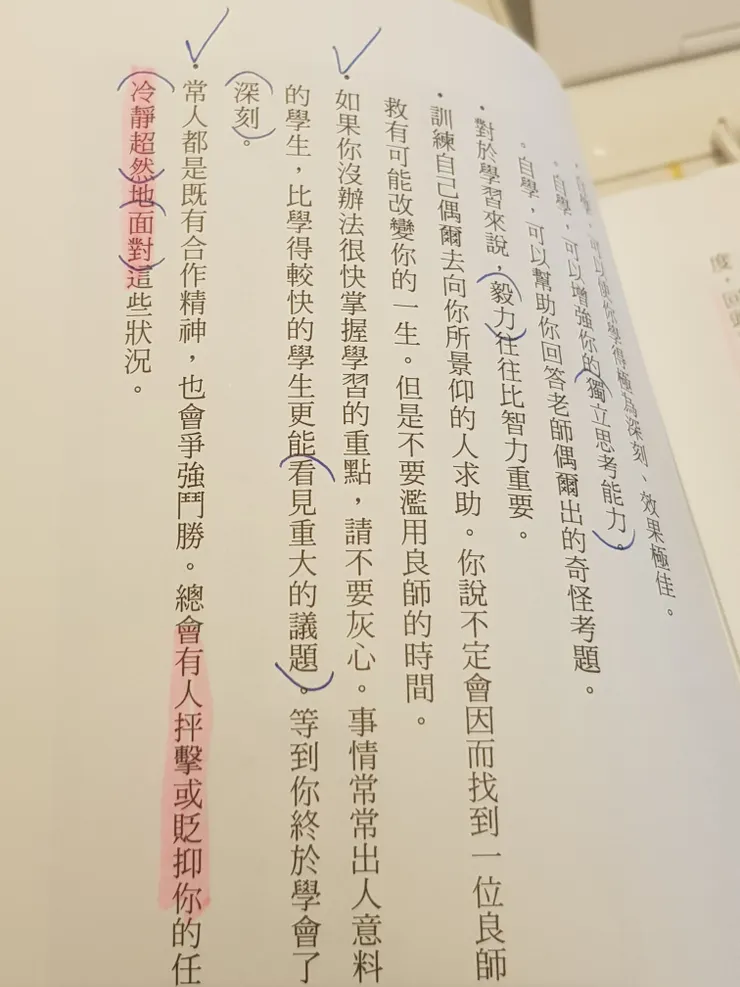 ・自學，可以使你學得極為深刻、效果極佳。
・自學，可以增強你的獨立思考能力。
・自學，可以幫助你回答老師偶爾出的奇怪考題。
・對於學習來說，毅力往往比智力重要。
・訓練自己偶爾去向你所景仰的人求助。你說不定會因而找到一位良師
救有可能改變你的一生。但是不要濫用良師的時間。
・如果你沒辦法很快掌握學習的重點，請不要灰心。事情常常出人意料
的學生，比學得較快的學生更能看見重大的議題。等到你終於學會了
深刻。
・常人都是既有合作精神，也會爭強鬥勝。總會有人抨擊或貶抑你的任
冷靜超然地面對這些狀況。